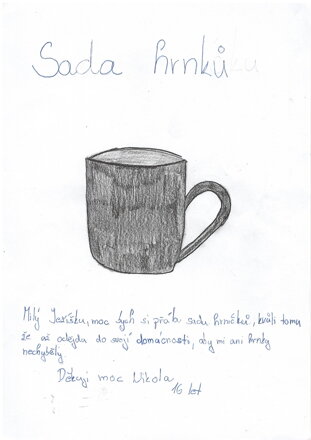 Sada hrnků
Milý Ježíšku, moc bych si přála sadu hrníčků, kvůli tomu
že až odejdu do svojí domácnosti, aby mi ani hrnky
nechyběly
Děkuji moc Nikola
16 let